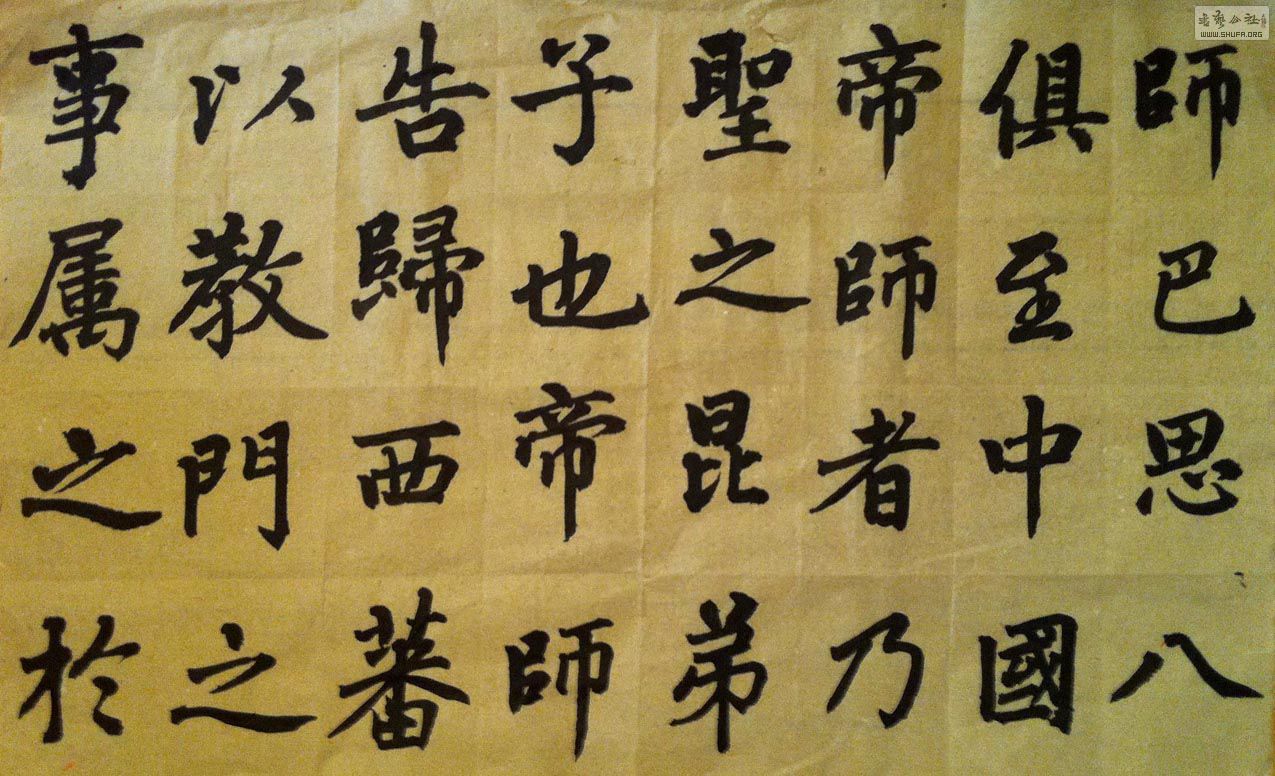 師巴思八
俱至中國
帝師者乃
聖之昆弟
子也帝師
告歸西蕃
以教門之
事属之於
WWW.SHUFA.ORG